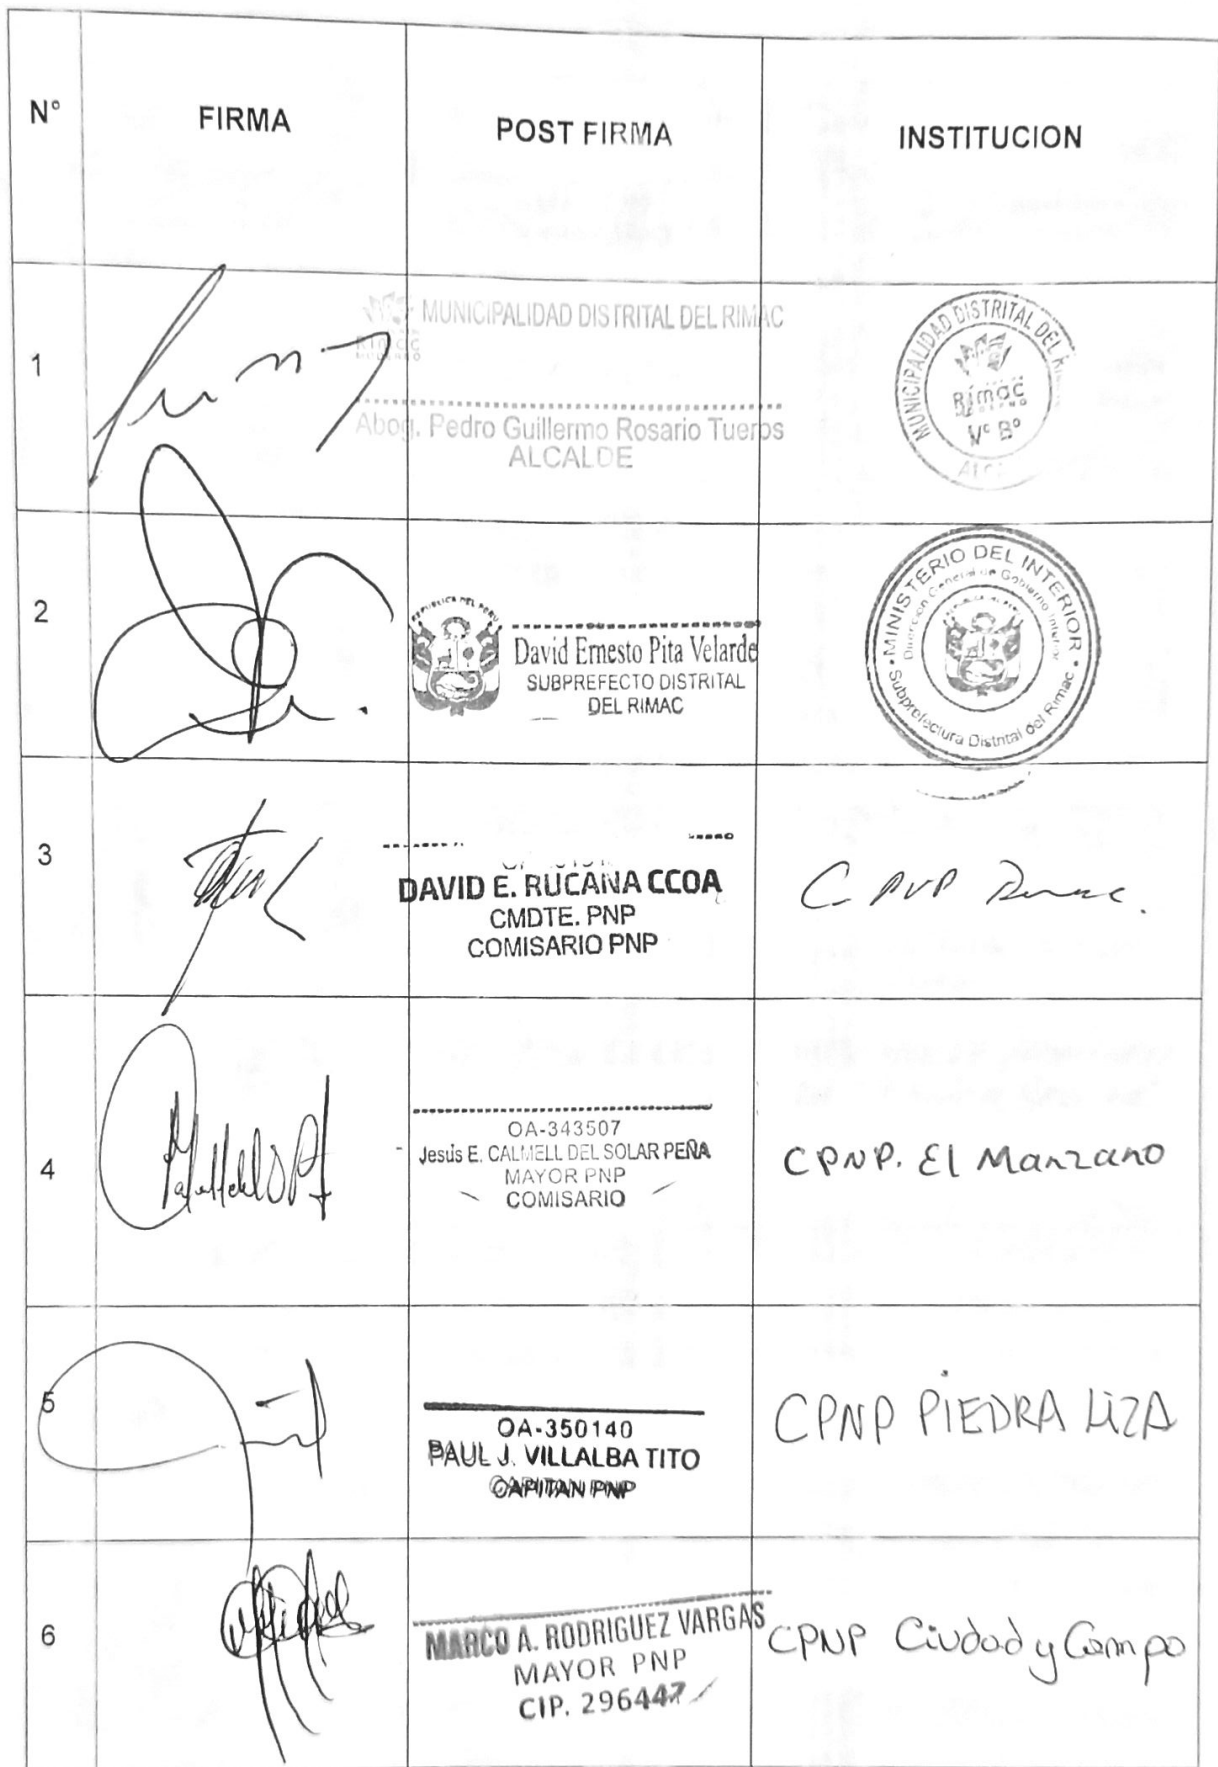 N° FIRMA POST FIRMA INSTITUCION
1
MUNICIPALIDAD DISTRITAL DEL RIMAC
Rímac
Abog. Pedro Guillermo Rosario Tueros
ALCALDE
MUNICIPALIDAD DISTRITAL DEL
Rímac
V° B°
2
REPUBLICA DEL PERU
David Ernesto Pita Velarde
SUBPREFECTO DISTRITAL
DEL RIMAC
MINISTERIO DEL INTERIOR
Dirección General de Gobierno Interior
Subprefectura Distrital del Rimac
3
DAVID E. RUCANA CCOA
CMDTE. PNP
COMISARIO PNP
C PNP Rimac.
4
OA-343507
Jesús E. CALMELL DEL SOLAR PEÑA
MAYOR PNP
COMISARIO
CPNP. El Manzano
5
OA-350140
PAUL J. VILLALBA TITO
CAPITAN PNP
CPNP PIEDRA LIZA
6
MARCO A. RODRIGUEZ VARGAS
MAYOR PNP
CIP. 296447
CPNP Ciudad y Campo